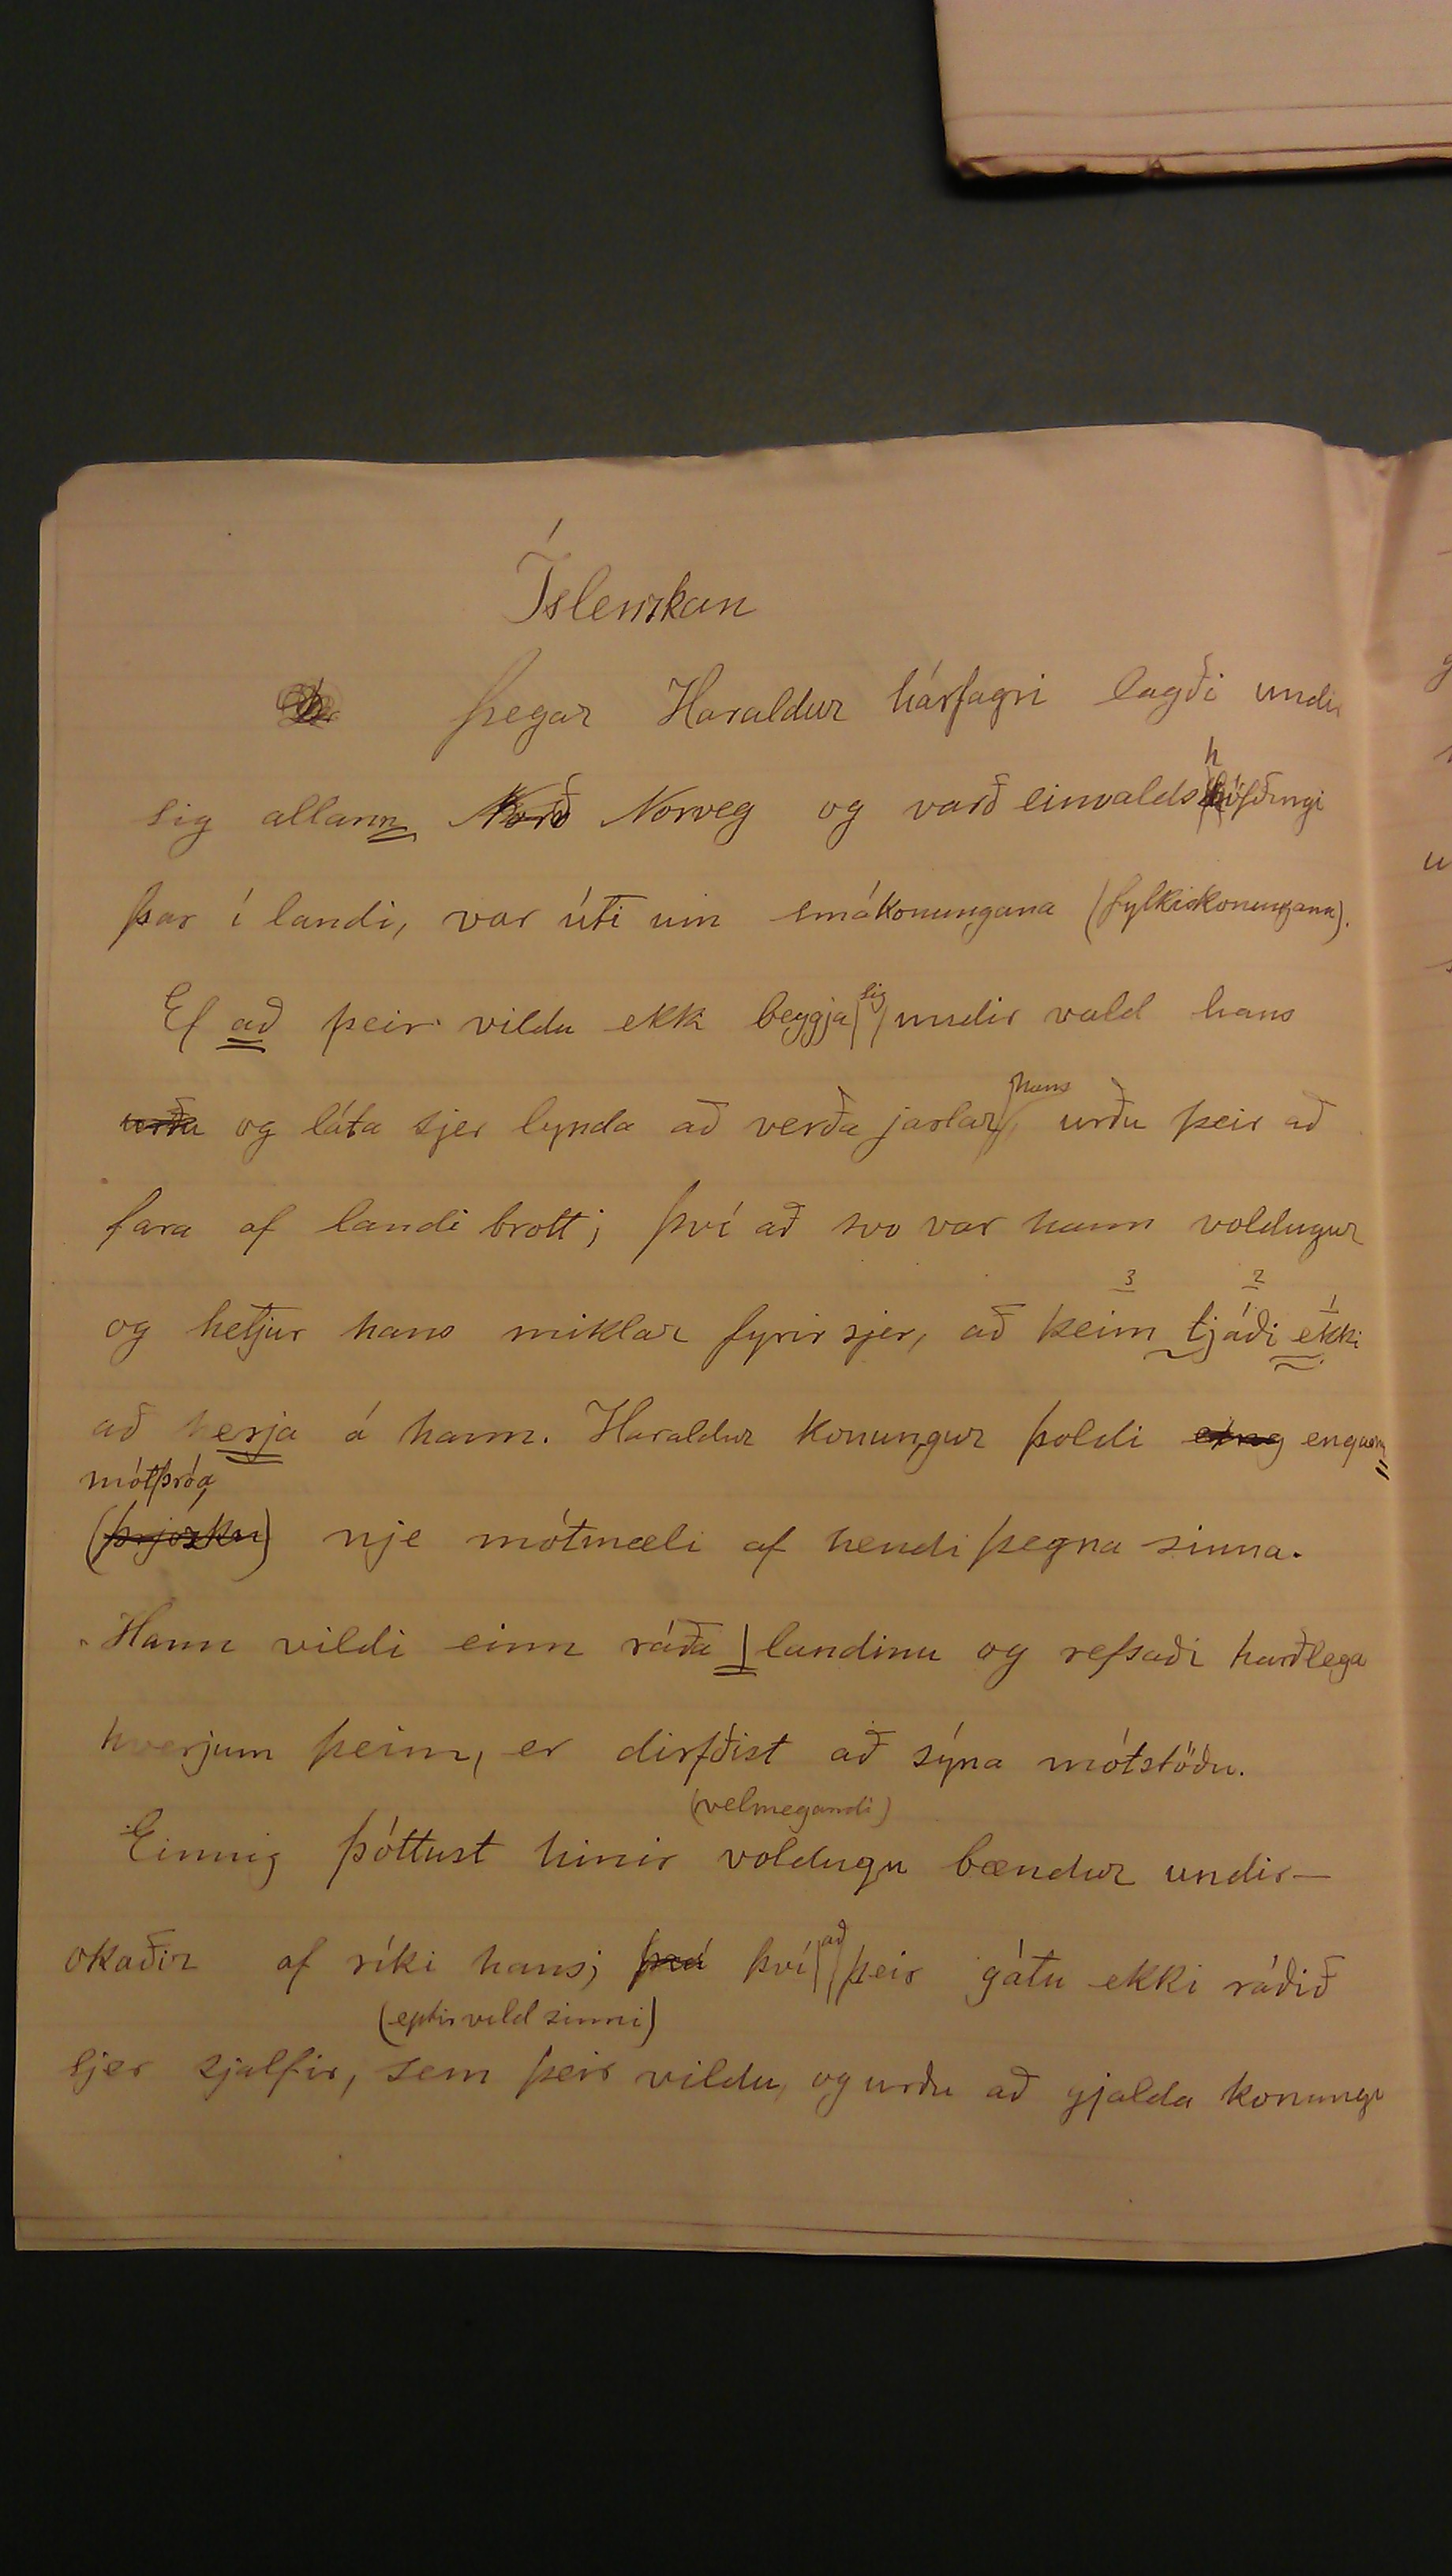 Íslenzkan
Þegar Haraldur hárfagri lagði undir
sig allann Norð Norveg og varð einvaldshöfðingi
h
þar í landi, var úti um smákonungana (fylkiskonungana).
Ef að þeir vildu ekk beygja sig undir vald hans
urðu og láta sjer lynda að verða jarlar hans, urðu þeir að
fara af landi brott; því að svo var hann voldugur
3 2 1
og hetjur hans miklar fyrir sjer, að þeim tjáði ekki
að herja á hann. Haraldur konungur þoldi engann
mótþróa
(þrjózku) nje mótmæli af hendi þegna sinna.
Hann vildi einn ráða landinu og refsaði harðlega
hverjum þeim, er dirfðist að sýna mótstöðu.
(velmegandi)
Einnig þóttust hinir voldugu bændur undir-
okaðir af ríki hans; því að þeir gátu ekki ráðið
(eptir vild sinni)
sjer sjalfir, sem þeir vildu, og urðu að gjalda konungi